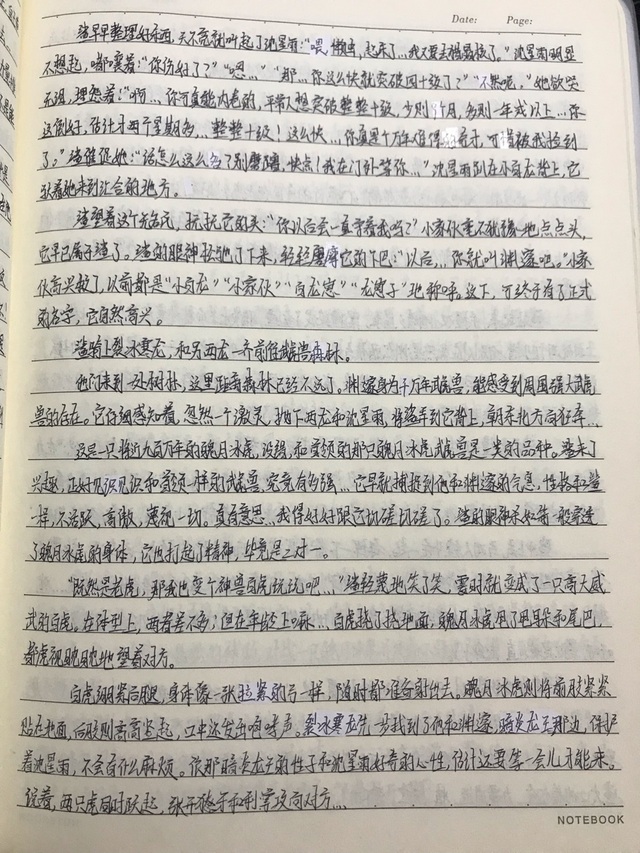 Date: Page:
早早整理好东西,天不亮就叫起了沈星雨:“喂,懒虫,起来了…我又要去猎魂核了。”沈星雨明显
不想起,嘟囔着:“你伤好了?”“嗯…”“那…你这么快就突破四十级了?”“不然呢。”她欲哭
无泪,埋怨着:“啊…你可真能内卷的,平常人想突破整整十级,少则 月,多则一年或以上…你
这倒好,估计才两个星期多…整整十级!这么快…你真是个万年难得的奇才,可惜被我捡到
了。” 催促她:“话怎么这么多?别磨蹭,快点!我在门外等你…”沈星雨趴在小白龙背上,它
驮着她来到汇合的地方。
望着这个 ,玩玩它的头:“你以后会一直守着我吗?”小家伙毫不犹豫地点点头,
它早已属于 了。 的眼神松弛了下来,轻轻摩挲它的下巴:“以后…你就叫渊 吧。”小家
伙高兴极了,以前都是“小白龙”“小家伙”“白龙崽”“龙崽子”地称呼,这下,可终于有了正式
的名字,它自然高兴。
骑上裂冰寒龙,和另两龙一齐前往武兽森林。
他们来到一处树林,这里距离森林已经不远了。渊 身为千万年武兽,能感受到周围强大武
兽的存在。它仔细感知着,忽然一个激灵,抛下两龙和沈星雨,将 弄到它背上,朝东北方向狂奔…
这是一只将近九百万年的魄月冰虎,没错,和 颜的那只魄月冰虎武兽是一类的品种。 来了
兴趣,正好见识见识和 颜一样的武兽,究竟有多强…它早就捕捉到他和渊 的气息,性格和
一样,不活跃,高傲,蔑视一切。真有意思…我得好好跟它切磋切磋了。 的眼神杀如箭一般穿透
了魄月冰虎的身体,它也打起了精神,毕竟是二对一。
“既然是老虎,那我也变个神兽白虎玩玩吧…” 轻蔑地笑了笑,霎时就变成了一只高大威
武的白虎。在体型上,两者差不多;但在年龄上嘛…白虎挠了挠地面,魄月冰虎甩了甩脑袋和尾巴,
都虎视眈眈地望着对方。
白虎绷紧后腿,身体像一张拉紧的弓一样,随时都准备射出去。魄月冰虎则将前肢紧紧
贴在地面,后肢则高高竖起,口中还发出呜呼声。裂冰寒龙先一步找到了他和渊 ,暗炎龙王那边,保护
着沈星雨,不会有什么麻烦。依那暗炎龙王的性子和沈星雨好奇的心性,估计还要等一会儿才能来。
说着,两只虎同时跃起,张开獠牙和利掌攻向对方…
NOTEBOOK